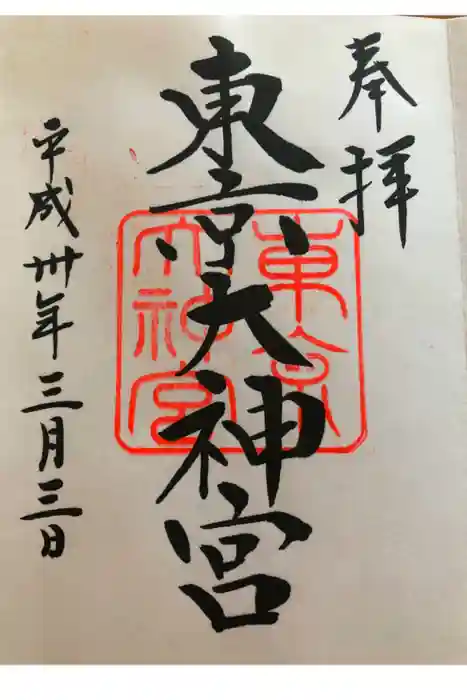 奉拝
東京大神宮
東京
大神宮
平成卅年三月三日